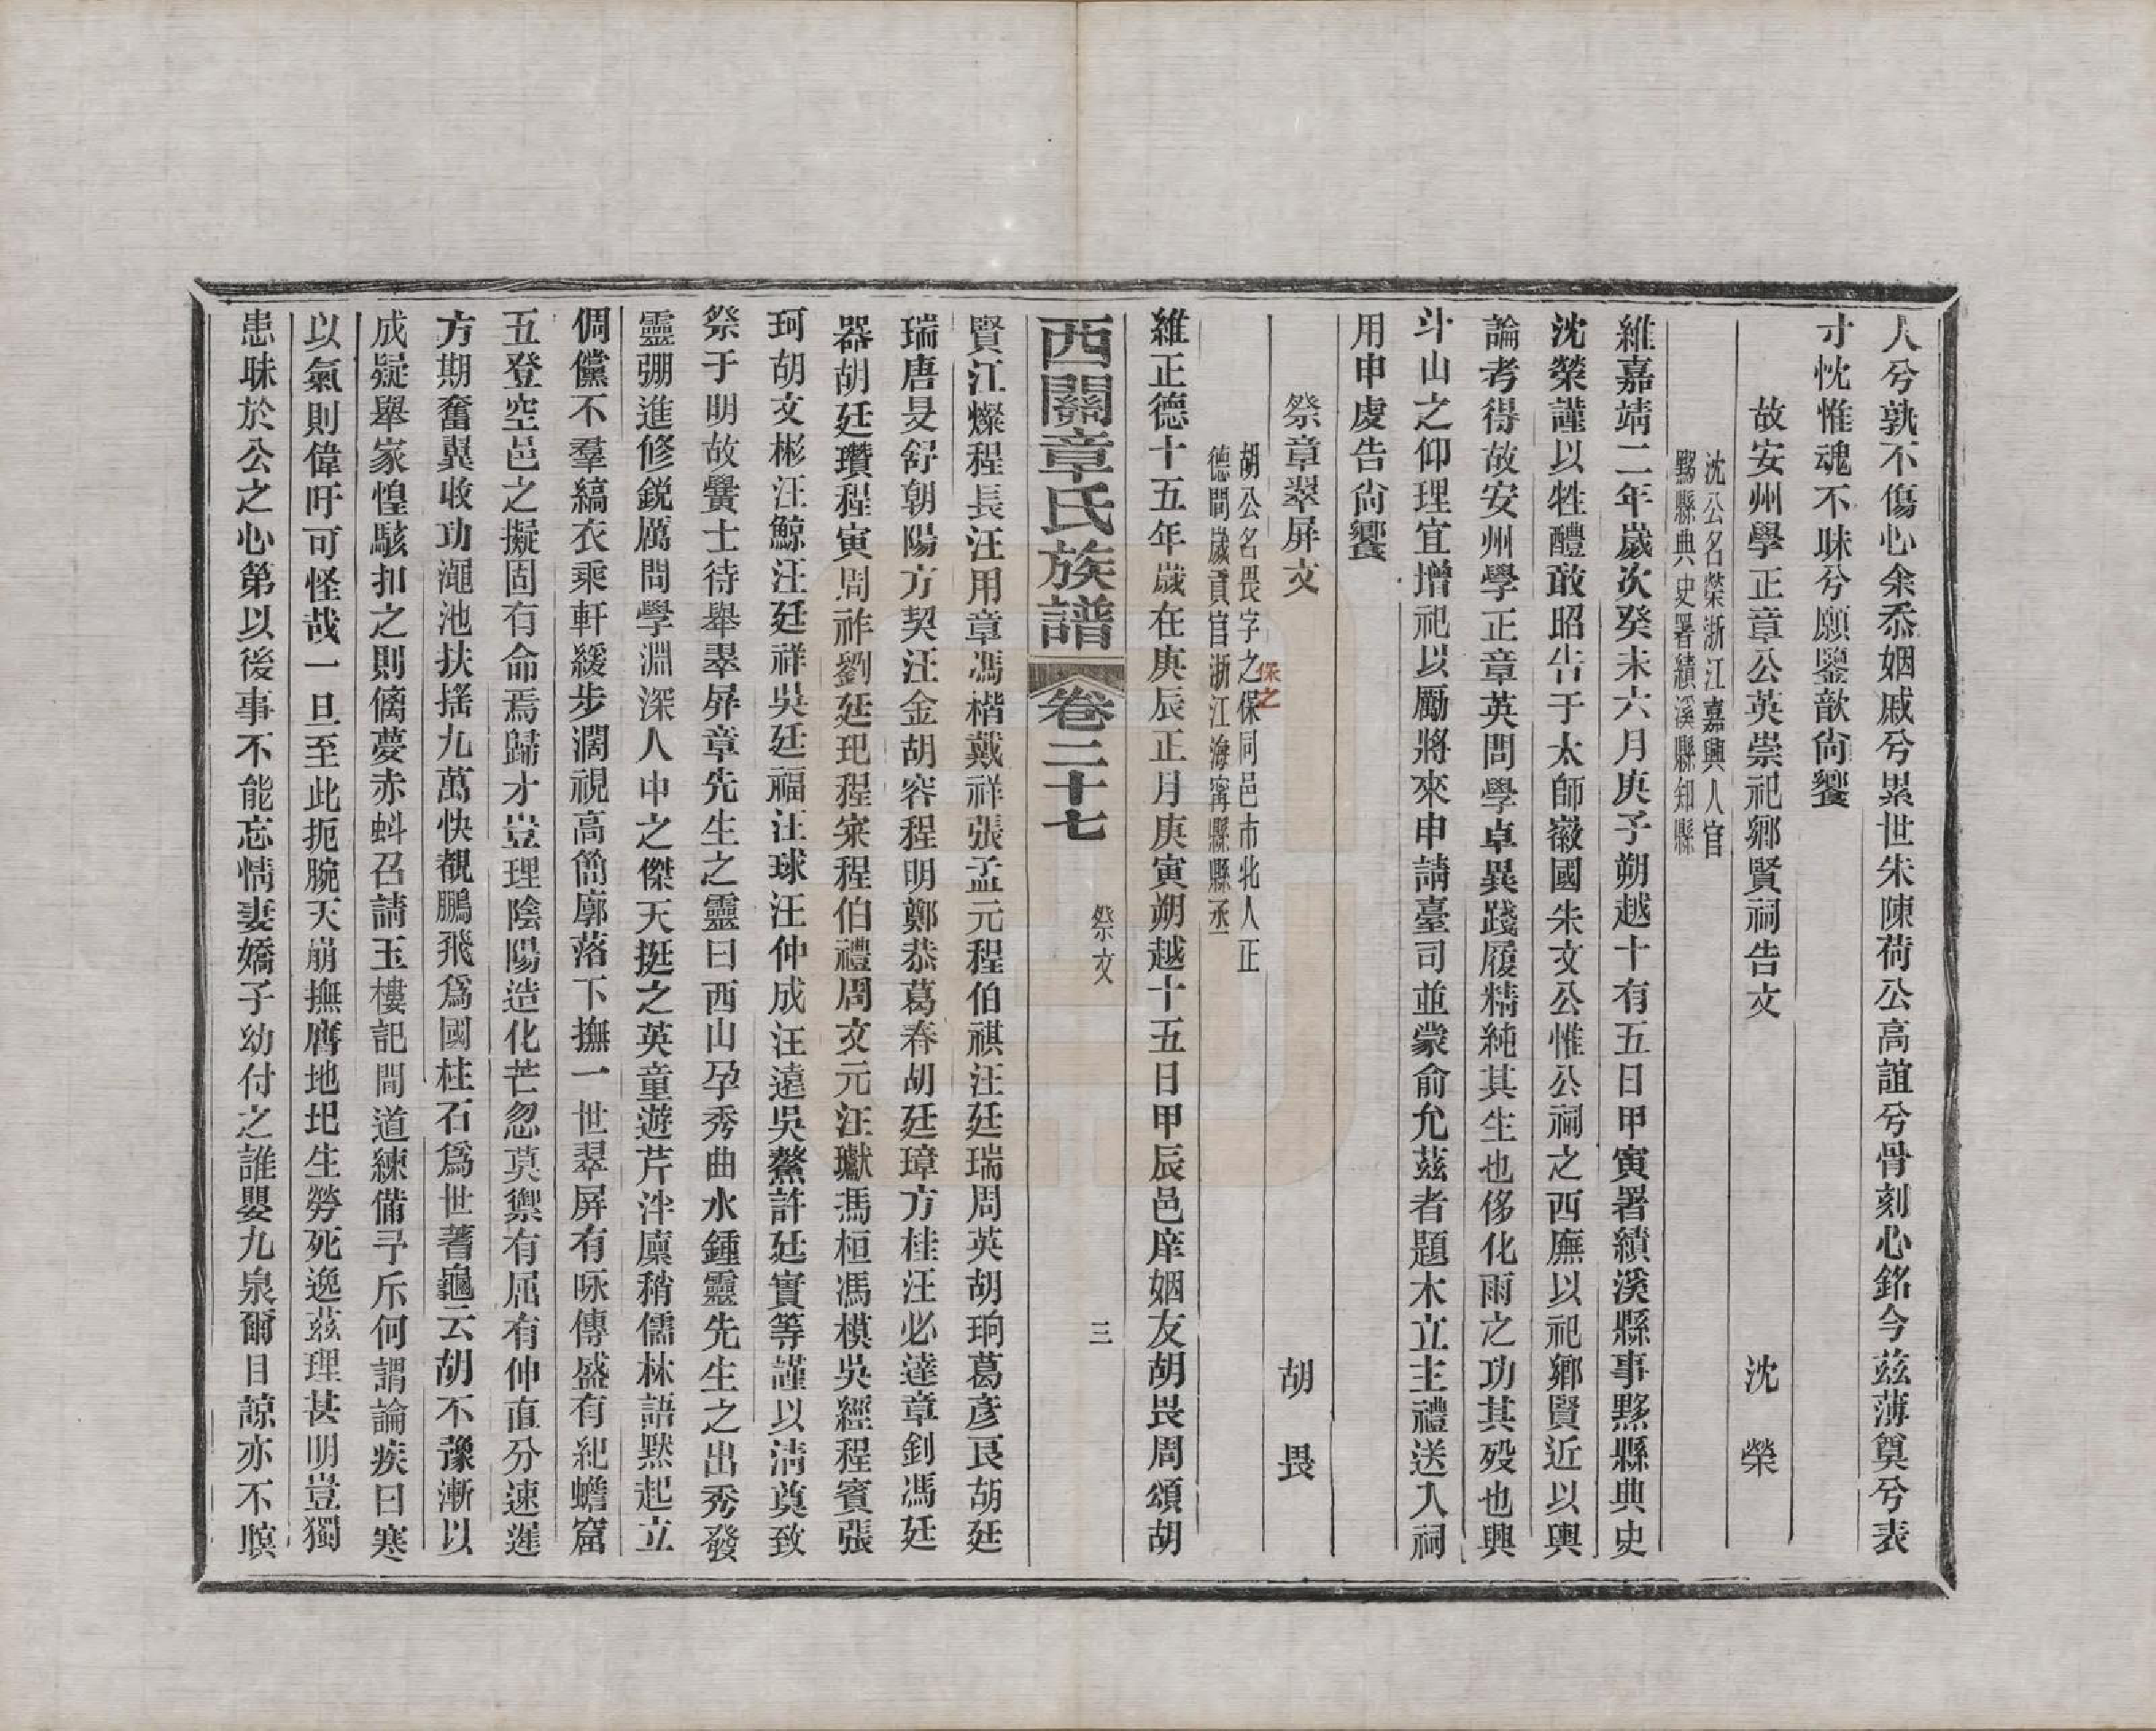 人兮孰不傷心余忝姻戚兮累世朱陳荷公高誼兮骨刻心銘今茲薄奠兮表
寸忱惟魂不昧兮願鑒歆尙饗
故安州學正章公英崇祀鄉賢祠告文　沈榮
沈公名榮浙江嘉興人官
黟縣典史署績溪縣知縣
維嘉靖二年歲次癸未六月庚子朔越十有五日甲寅署績溪縣事黟縣典史
沈榮謹以牲醴敢昭告于太師徽國朱文公惟公祠之西廡以祀鄉賢近以輿
論考得故安州學正章英問學卓異踐履精純其生也侈化雨之功其殁也興
斗山之仰理宜增祀以勵將來申請臺司並蒙俞允茲者題木立主禮送入祠
用申虔告尙饗
祭章翠屏文　胡畏
胡公名畏字之保同邑市北人正
德間歲貢官浙江海寧縣縣丞
保之
維正德十五年歲在庚辰正月庚寅朔越十五日甲辰邑庠姻友胡畏周頌胡
西關章氏族譜　卷二十七　祭文　三
賢江燦程長汪用章馮楷戴祥張孟元程伯祺汪廷瑞周英胡珦葛彥良胡廷
瑞唐旻舒朝陽方契汪金胡容程明鄭恭葛春胡廷璋方桂汪必達章釗馮廷
器胡廷瓚程寅周祚劉廷玘程寀程伯禮周文元汪瓛馮桓馮模吳經程賓張
珂胡文彬汪鯨汪廷祥吳廷福汪球汪仲成汪遠吳鰲許廷實等謹以淸奠致
祭于明故黌士待舉翠屏章先生之靈曰西山孕秀曲水鍾靈先生之出秀發
靈弸進修銳厲問學淵深人中之傑天挺之英童遊芹泮廩稍儒林語默起立
倜儻不羣縞衣乘軒緩步濶視高簡廓落下撫一世翠屏有咏傳盛有紀蟾窟
五登空邑之擬固有命焉歸才豈理陰陽造化芒忽莫禦有屈有伸直分速遲
方期奮翼收功澠池扶搖九萬快覩鵬飛爲國柱石爲世蓍龜云胡不豫漸以
成疑舉家惶駭扣之則儞夢赤蚪召請玉樓記間道練備予斥何謂論疾曰寒
以氣則偉吁可怪哉一旦至此扼腕天崩撫膺地圯生勞死逸茲理甚明豈獨
患昧於公之心第以後事不能忘情妻嬌子幼付之誰嬰九泉爾目諒亦不瞑